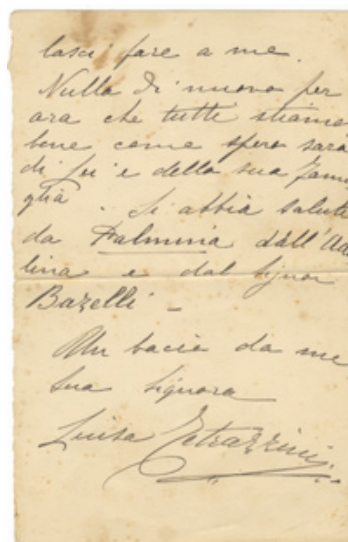 lasci fare a me.
Nulla di nuovo per
ora che tutti stiamo
bene come spero sarà
di Lei e della sua fami
glia. Si abbia saluti
da Palmina dall'Ada
lina e dal Signor
Bazelli –
Un bacio da me
Sua Signora
Luisa Tetrazzini